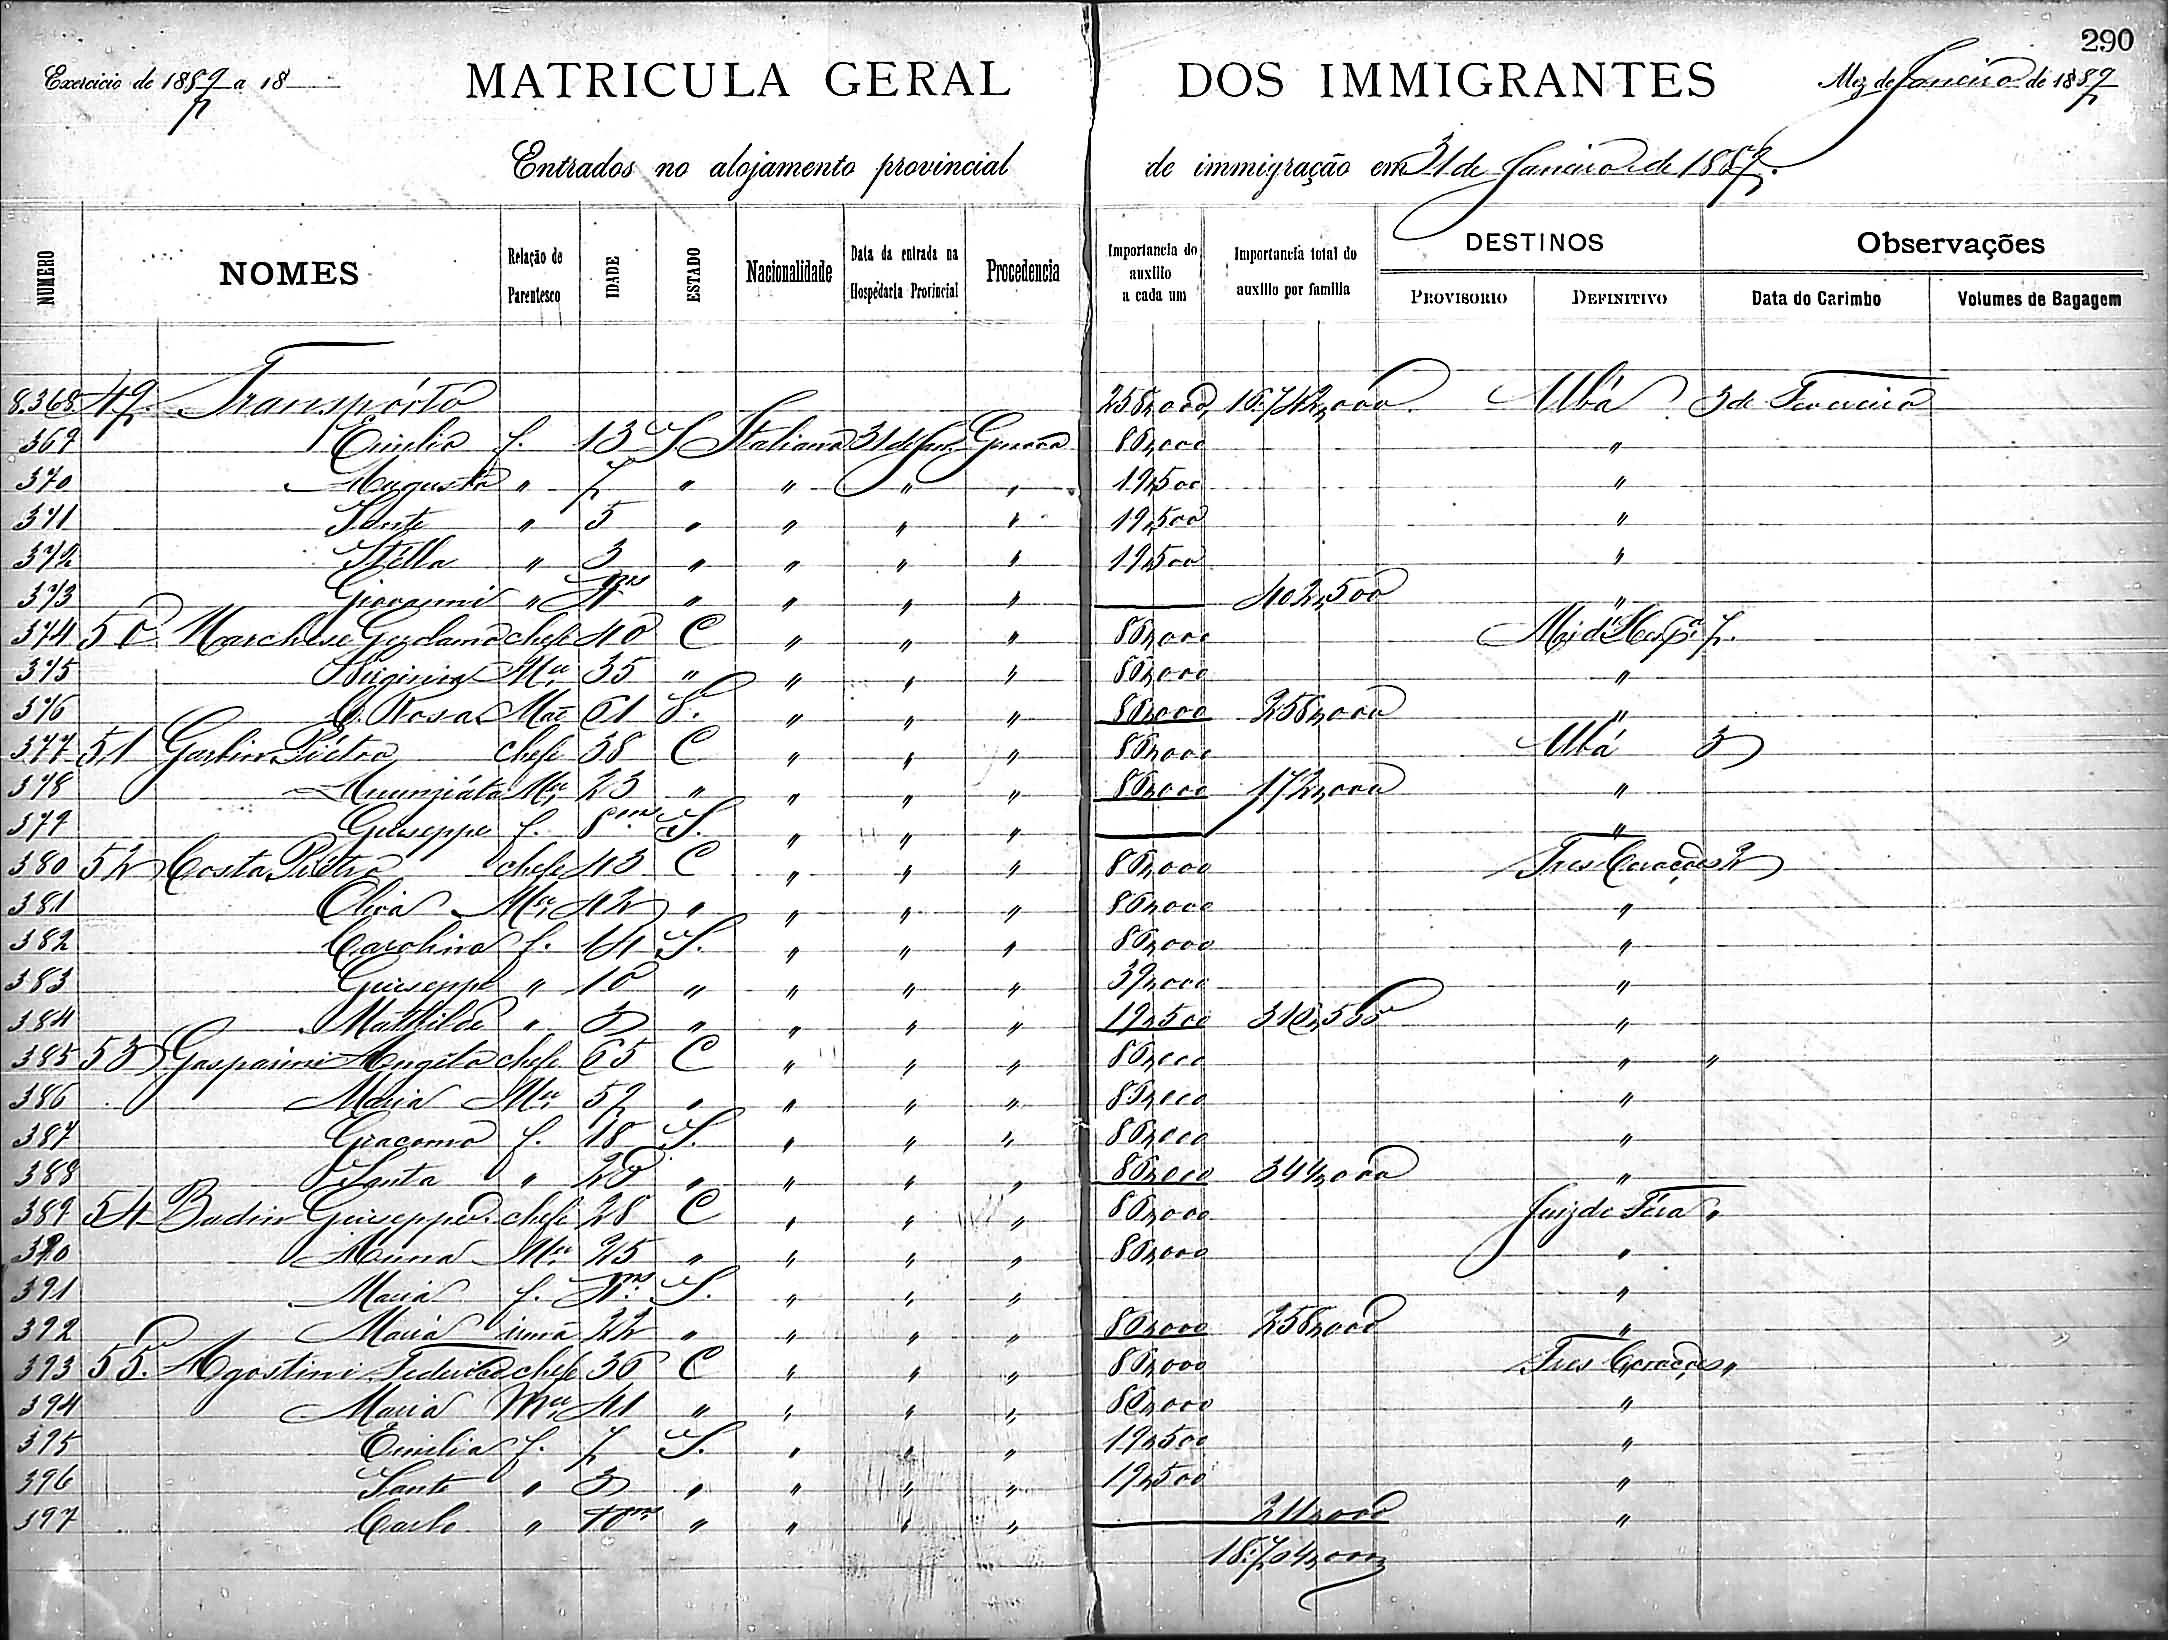 290
Exercicio de 1887 a 18
MATRICULA GERAL DOS IMMIGRANTES
Mez de Janeiro de 1887
Entrados no alojamento provincial de immigração em 31 de Janeiro de 1887.
NUMERO NOMES Relação de Parentesco IDADE ESTADO Nacionalidade Data da entrada na Hospedaria Provincial Procedencia Importancia do auxilio a cada um Importancia total do auxilio por familia DESTINOS PROVISORIO DEFINITIVO Observações Data do Carimbo Volumes de Bagagem
8.368 49 Transpórto 258,000 16.742,000 Ubá 3 de Fevereiro
369 Emilia f. 13 S. Italiana 31 de Jan. Genova 86,000 "
370 Augusta " 7 " " " " 19,500 "
371 Sante " 5 " " " " 19,500 "
372 Stella " 3 " " " " 19,500 "
373 Giovanni " " " " " 402,500 "
374 50 Marchese Gerolamo chefe 40 C " " " 86,000
375 Virginia Mer 35 " " " " 86,000 "
376 Rosa Mãe 61 S. " " " 86,000 258,000 "
377 51 Garbin Piétro chefe 38 C " " " 86,000 Ubá 3
378 Nunziáta Mer 23 " " " " 86,000 172,000 "
379 Giuseppe f. 8 ms S. " " " "
380 52 Costa Piétro chefe 43 C " " " 86,000 Tres Corações 2
381 Oliva Mer 42 " " " " 86,000 "
382 Carolina f. 14 S. " " " 86,000 "
383 Giuseppe " 10 " " " " 39,000 "
384 Mathilde " 5 " " " " 19,500 316,500 "
385 53 Gasparini Angelo chefe 65 C " " " 86,000 " "
386 Maria Mer 57 " " " " 86,000 "
387 Giacomo f. 18 S. " " " 86,000 "
388 Santa " 20 " " " " 86,000 344,000 "
389 54 Badin Giuseppe chefe 28 C " " " 86,000 Juiz de Fóra "
390 Anna Mer 25 " " " " 86,000 "
391 Maria f. S. " " " "
392 Maria irmã 22 " " " " 86,000 258,000 "
393 55. Agostini Federico chefe 36 C " " " 86,000 Tres Corações "
394 Maria Mer 41 " " " " 86,000 "
395 Emilia f. 7 S. " " " 19,500 "
396 Sante " 3 " " " " 19,500 "
397 Carlo " 10 ms " " " " 211,000 "
18.704,000